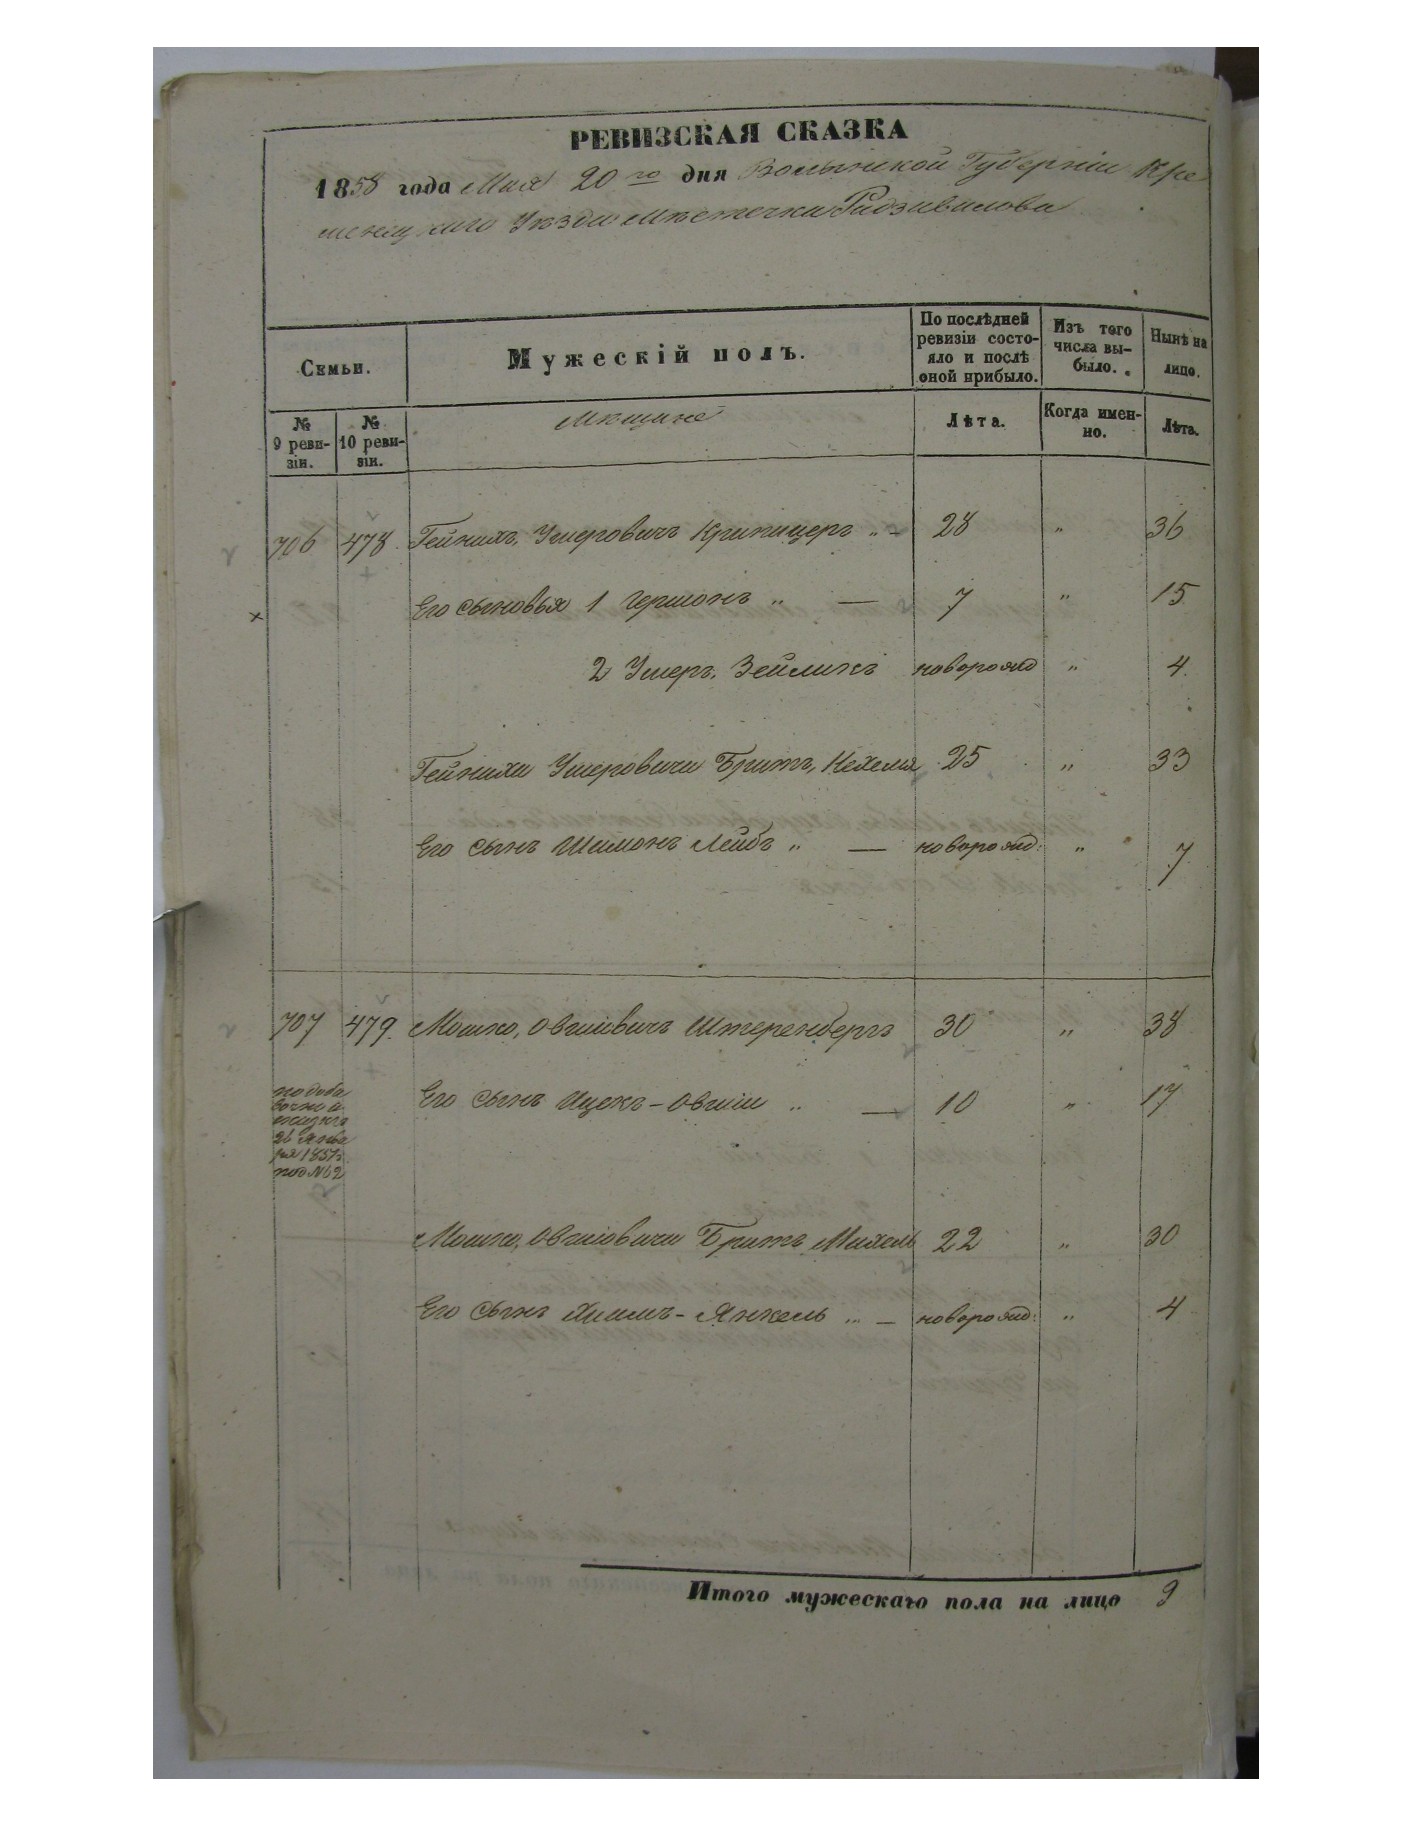 РЕВИЗСКАЯ СКАЗКА
1858 года Мая 20го дня Волынской Губерніи Кре
менецкаго Уѣзда Мѣстечка Радзивилова
Семьи.
Мужескій полъ.
По послѣдней ревизіи состояло и послѣ оной прибыло.
Изъ того числа выбыло.
Нынѣ на лицо.
№ 9 ревизіи.
№ 10 ревизіи.
Мѣщане
Лѣта.
Когда именно.
Лѣта.
706 478 Гейнихъ Умеровичъ 28 „ 36
Его сыновья 1 Гершонъ „ — 7 „ 15
2 Умеръ Зейликъ новорожд „ 4
Гейниха Умеровича Братъ, Нехемія 25 „ 33
Его сынъ Шимонъ Лейбъ „ — новорожд: „ 7
707 479. Мошко, Овшіевичъ Штеренбергъ 30 „ 38
Его сынъ Ицекъ-Овшій „ — 10 „ 17
по доба
вочной
сказкѣ
26 Янва
ря 1851г
под №62
Мошко, Овшіовича Братъ Михель 22 „ 30
Его сынъ Хаимъ-Янкель „ — новорожд: „ 4
Итого мужескаго пола на лицо 9